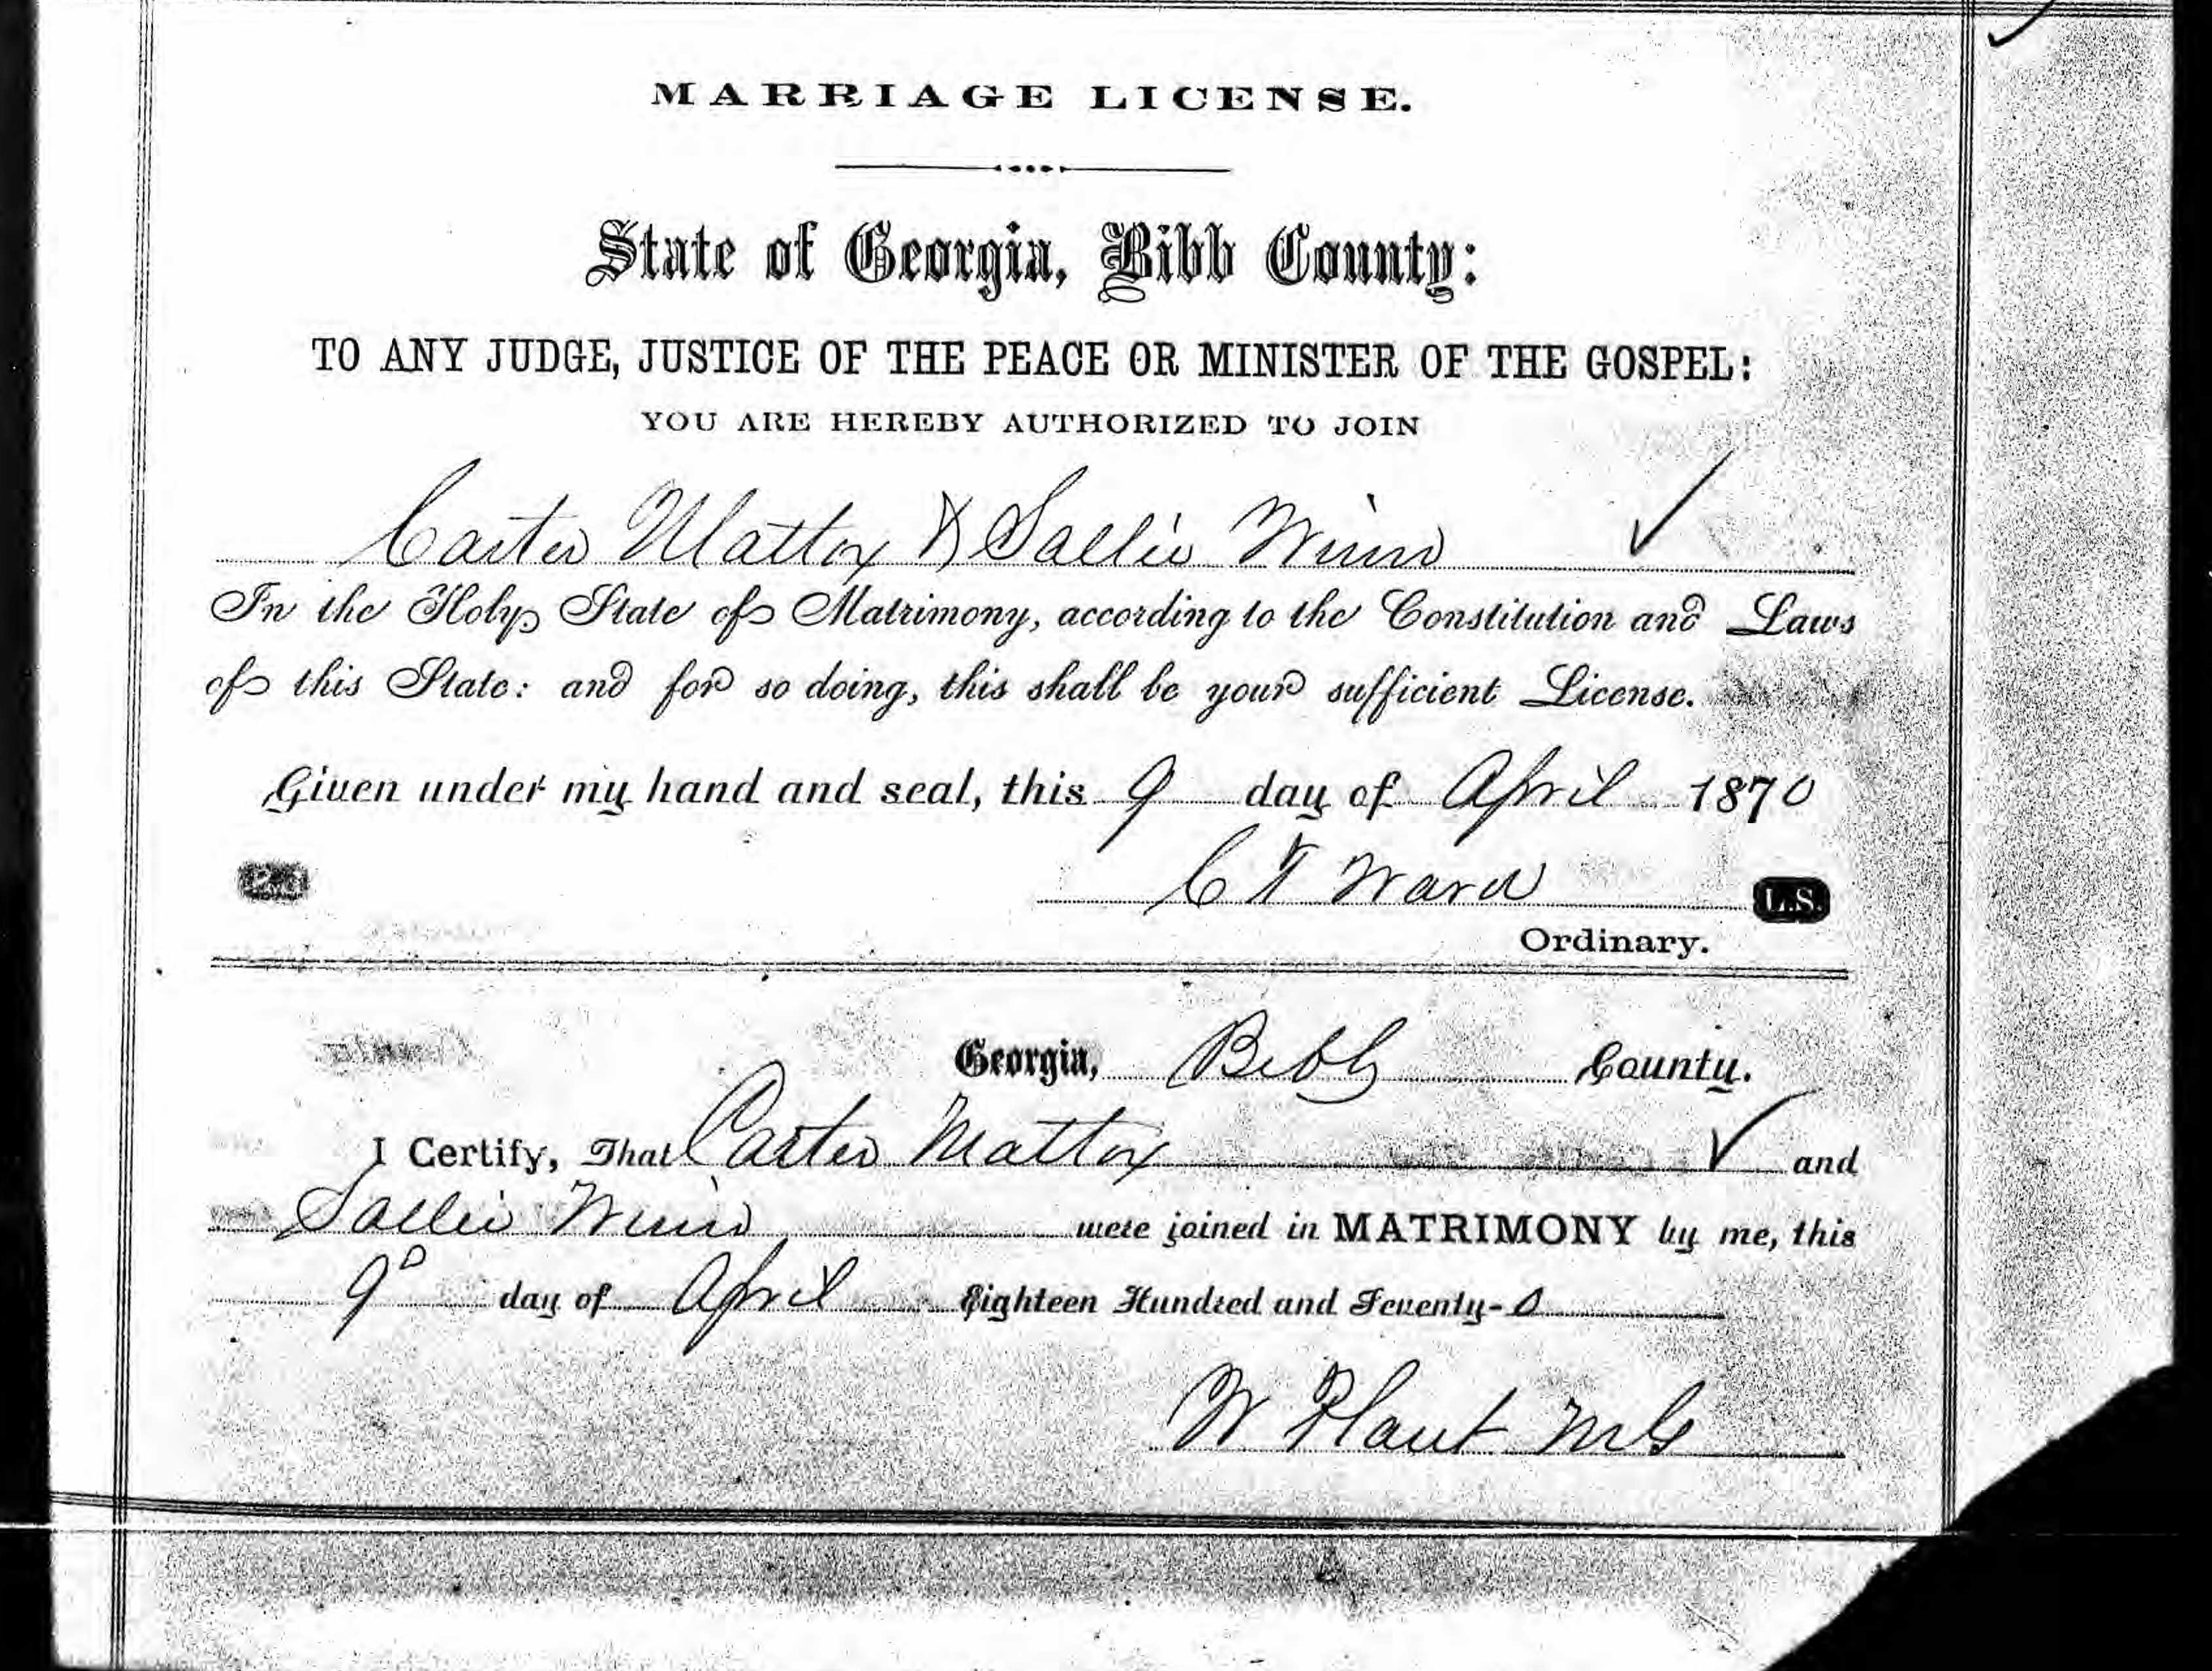 MARRIAGE LICENSE.
State of Georgia, Bibb County:
TO ANY JUDGE, JUSTICE OF THE PEACE OR MINISTER OF THE GOSPEL:
YOU ARE HEREBY AUTHORIZED TO JOIN
Carter Mattox & Sallie Winn
In the Holy State of Matrimony, according to the Constitution and Laws
of this State: and for so doing, this shall be your sufficient License.
Given under my hand and seal, this 9 day of April 1870
C T Ward L.S.
Ordinary.
Georgia, Bibb County.
I Certify, That Carter Mattox and
Sallie Winn were joined in MATRIMONY by me, this
9 day of April Eighteen Hundred and Seventy-0
W Plant MG